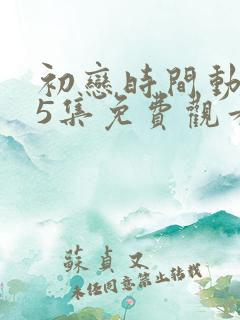 初戀時間動
5集免費觀看
蘇貞又
未經同意禁止轉載